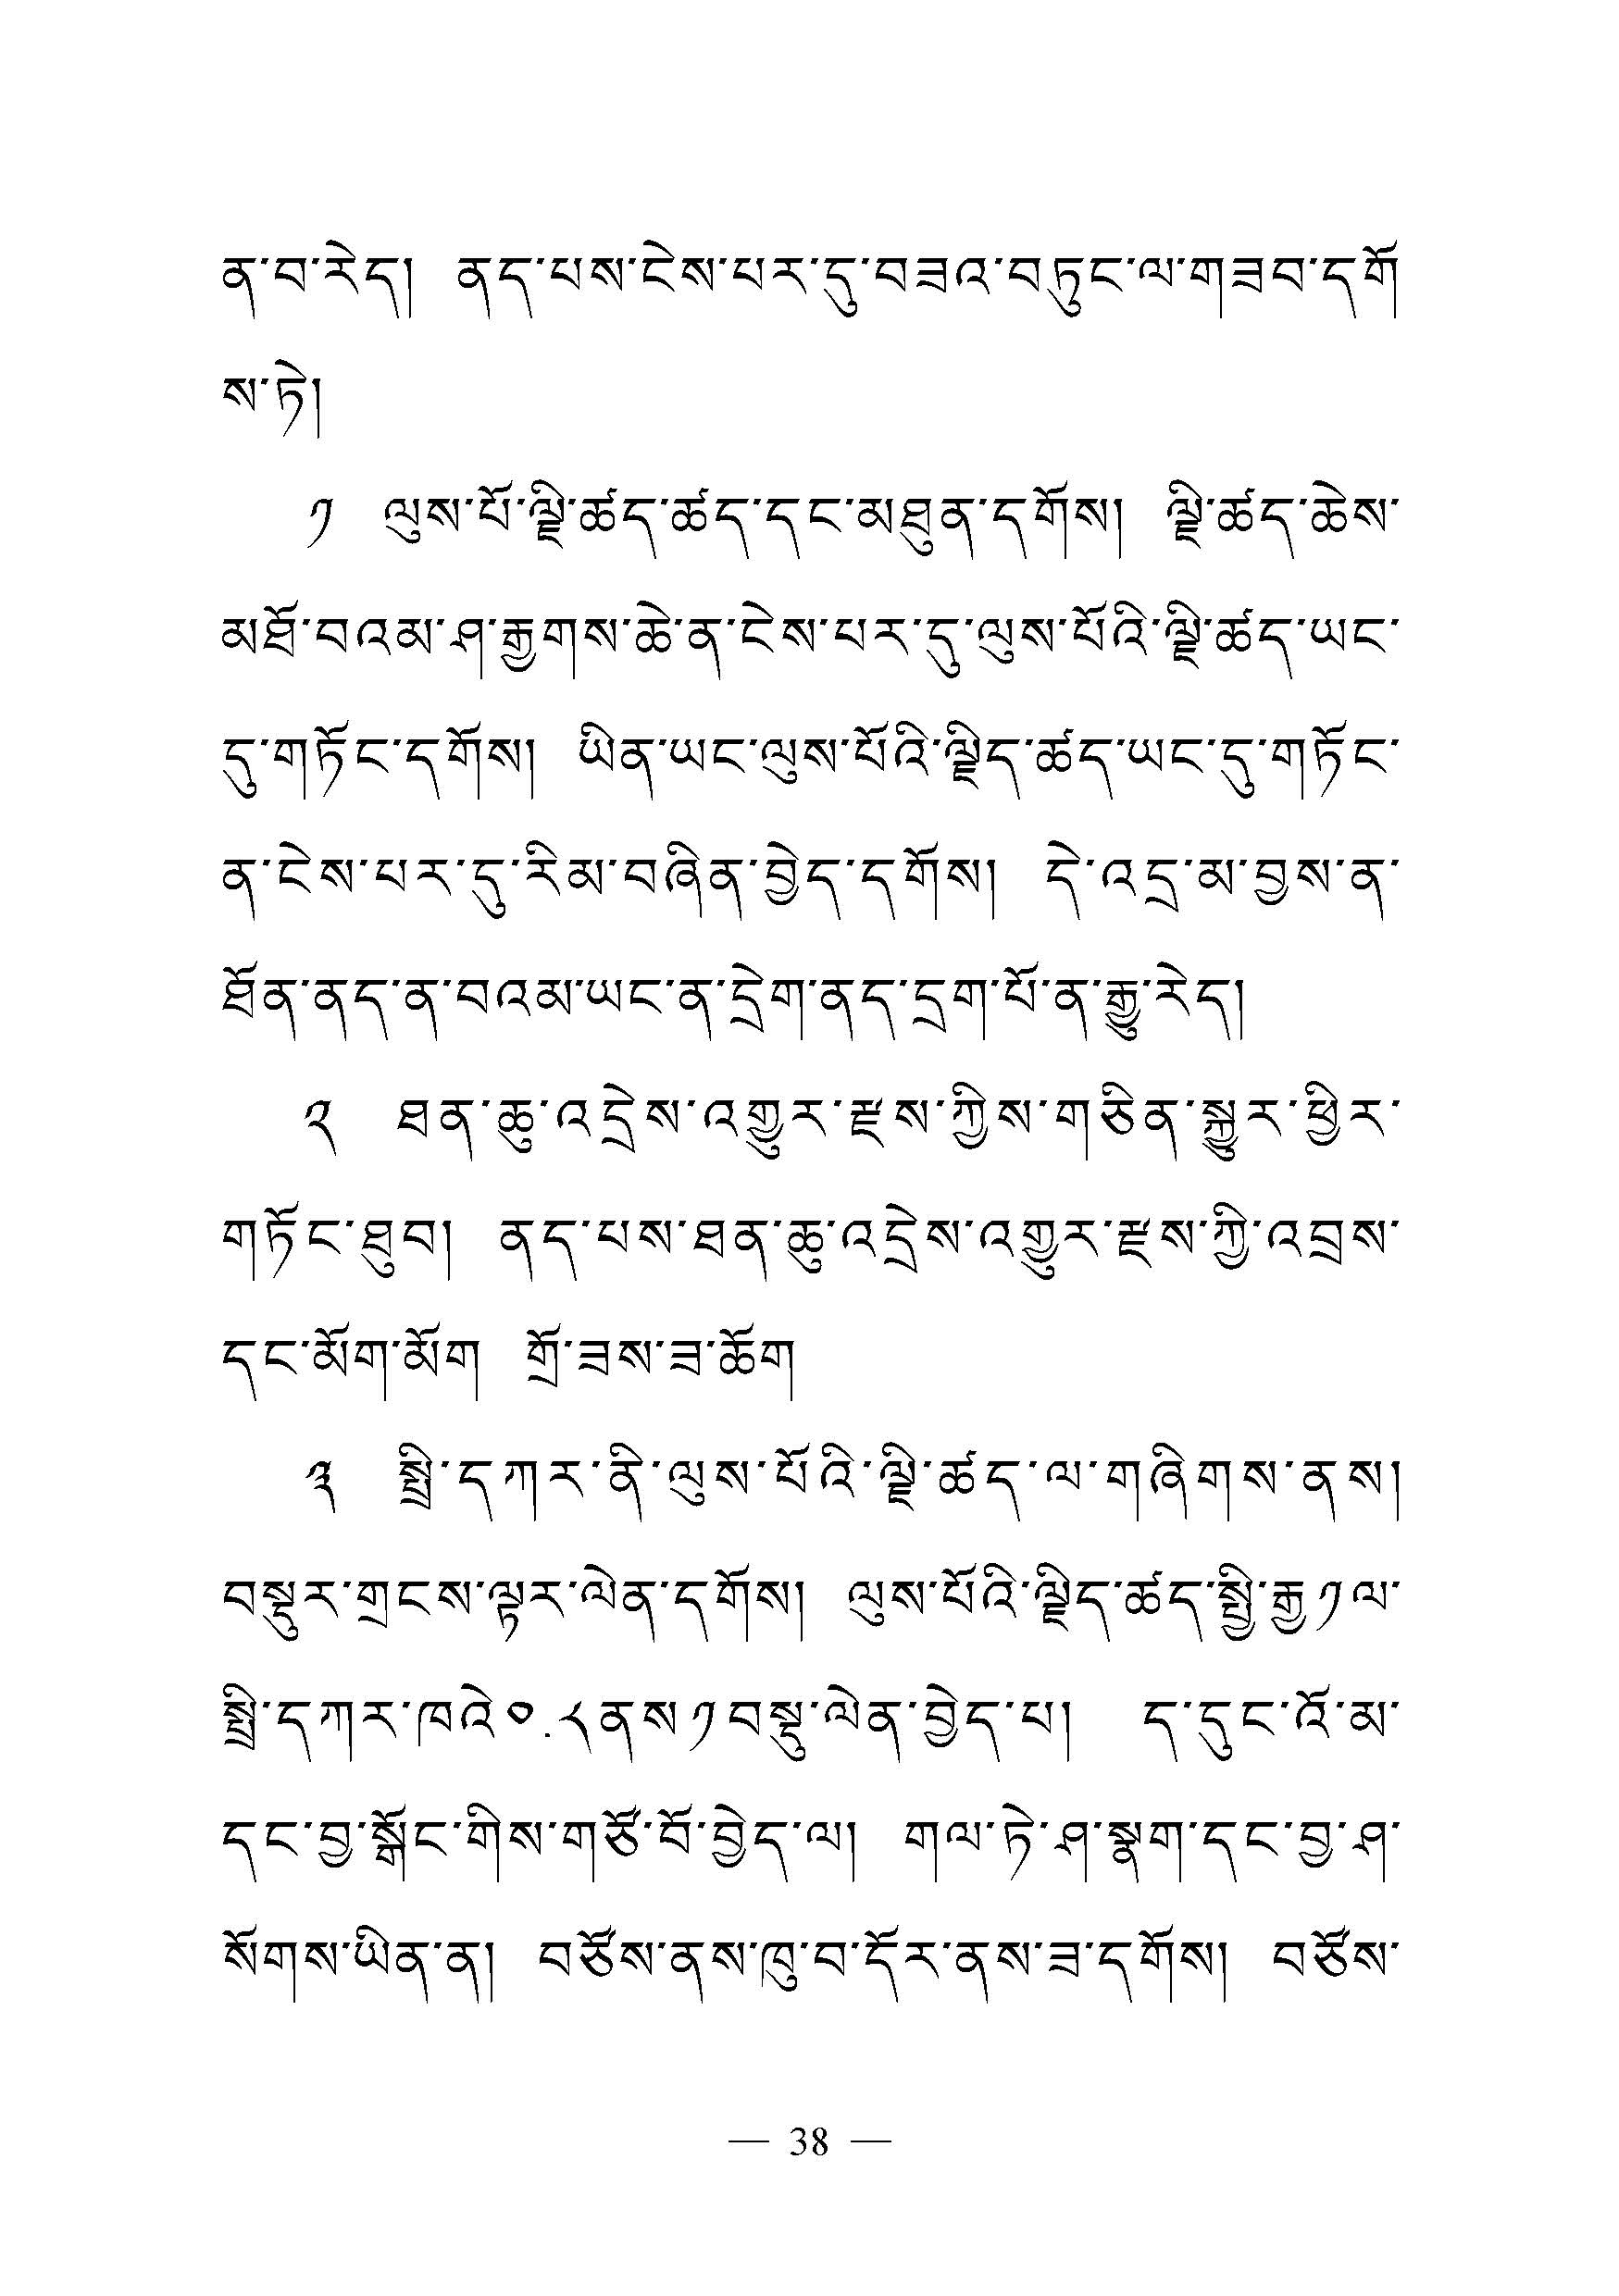 ན་བ་རེད། ནད་པས་ངེས་པར་དུ་བཟའ་བཏུང་ལ་གཟབ་དགོ
ས་ཏེ།
༡ ལུས་པོ་ལྗི་ཚད་ཚད་དང་མཐུན་དགོས། ལྗི་ཚད་ཆེས་
མཐོ་བའམ་ཤ་རྒྱགས་ཆེ་ན་ངེས་པར་དུ་ལུས་པོའི་ལྗི་ཚད་ཡང་
དུ་གཏོང་དགོས། ཡིན་ཡང་ལུས་པོའི་ལྗིད་ཚད་ཡང་དུ་གཏོང་
ན་ངེས་པར་དུ་རིམ་བཞིན་བྱེད་དགོས། དེ་འདྲ་མ་བྱས་ན་
ཐོན་ནད་ན་བའམ་ཡང་ན་དྲེག་ནད་དྲག་པོ་ན་རྒྱུ་རེད།
༢ ཐན་ཆུ་འདྲེས་འགྱུར་རྫས་ཀྱིས་གཅིན་སྐྱུར་ཕྱིར་
གཏོང་ཐུབ། ནད་པས་ཐན་ཆུ་འདྲེས་འགྱུར་རྫས་ཀྱི་འབྲས་
དང་མོག་མོག གྲོ་ཟས་ཟ་ཆོག
༣ སྤྲི་དཀར་ནི་ལུས་པོའི་ལྗི་ཚད་ལ་གཞིགས་ནས།
བསྡུར་གྲངས་ལྟར་ལེན་དགོས། ལུས་པོའི་ལྗིད་ཚད་སྤྱི་རྒྱ༡ལ་
སྤྲི་དཀར་ཁའེ༠.༨ནས༡བསྡུ་ལེན་བྱེད་པ། ད་དུང་འོ་མ་
དང་བྱ་སྒོང་གིས་གཙོ་བོ་བྱེད་ལ། གལ་ཏེ་ཤ་སྣག་དང་བྱ་ཤ་
སོགས་ཡིན་ན། བཙོས་ནས་ཁུ་བ་དོར་ནས་ཟ་དགོས། བཙོས་
— 38 —